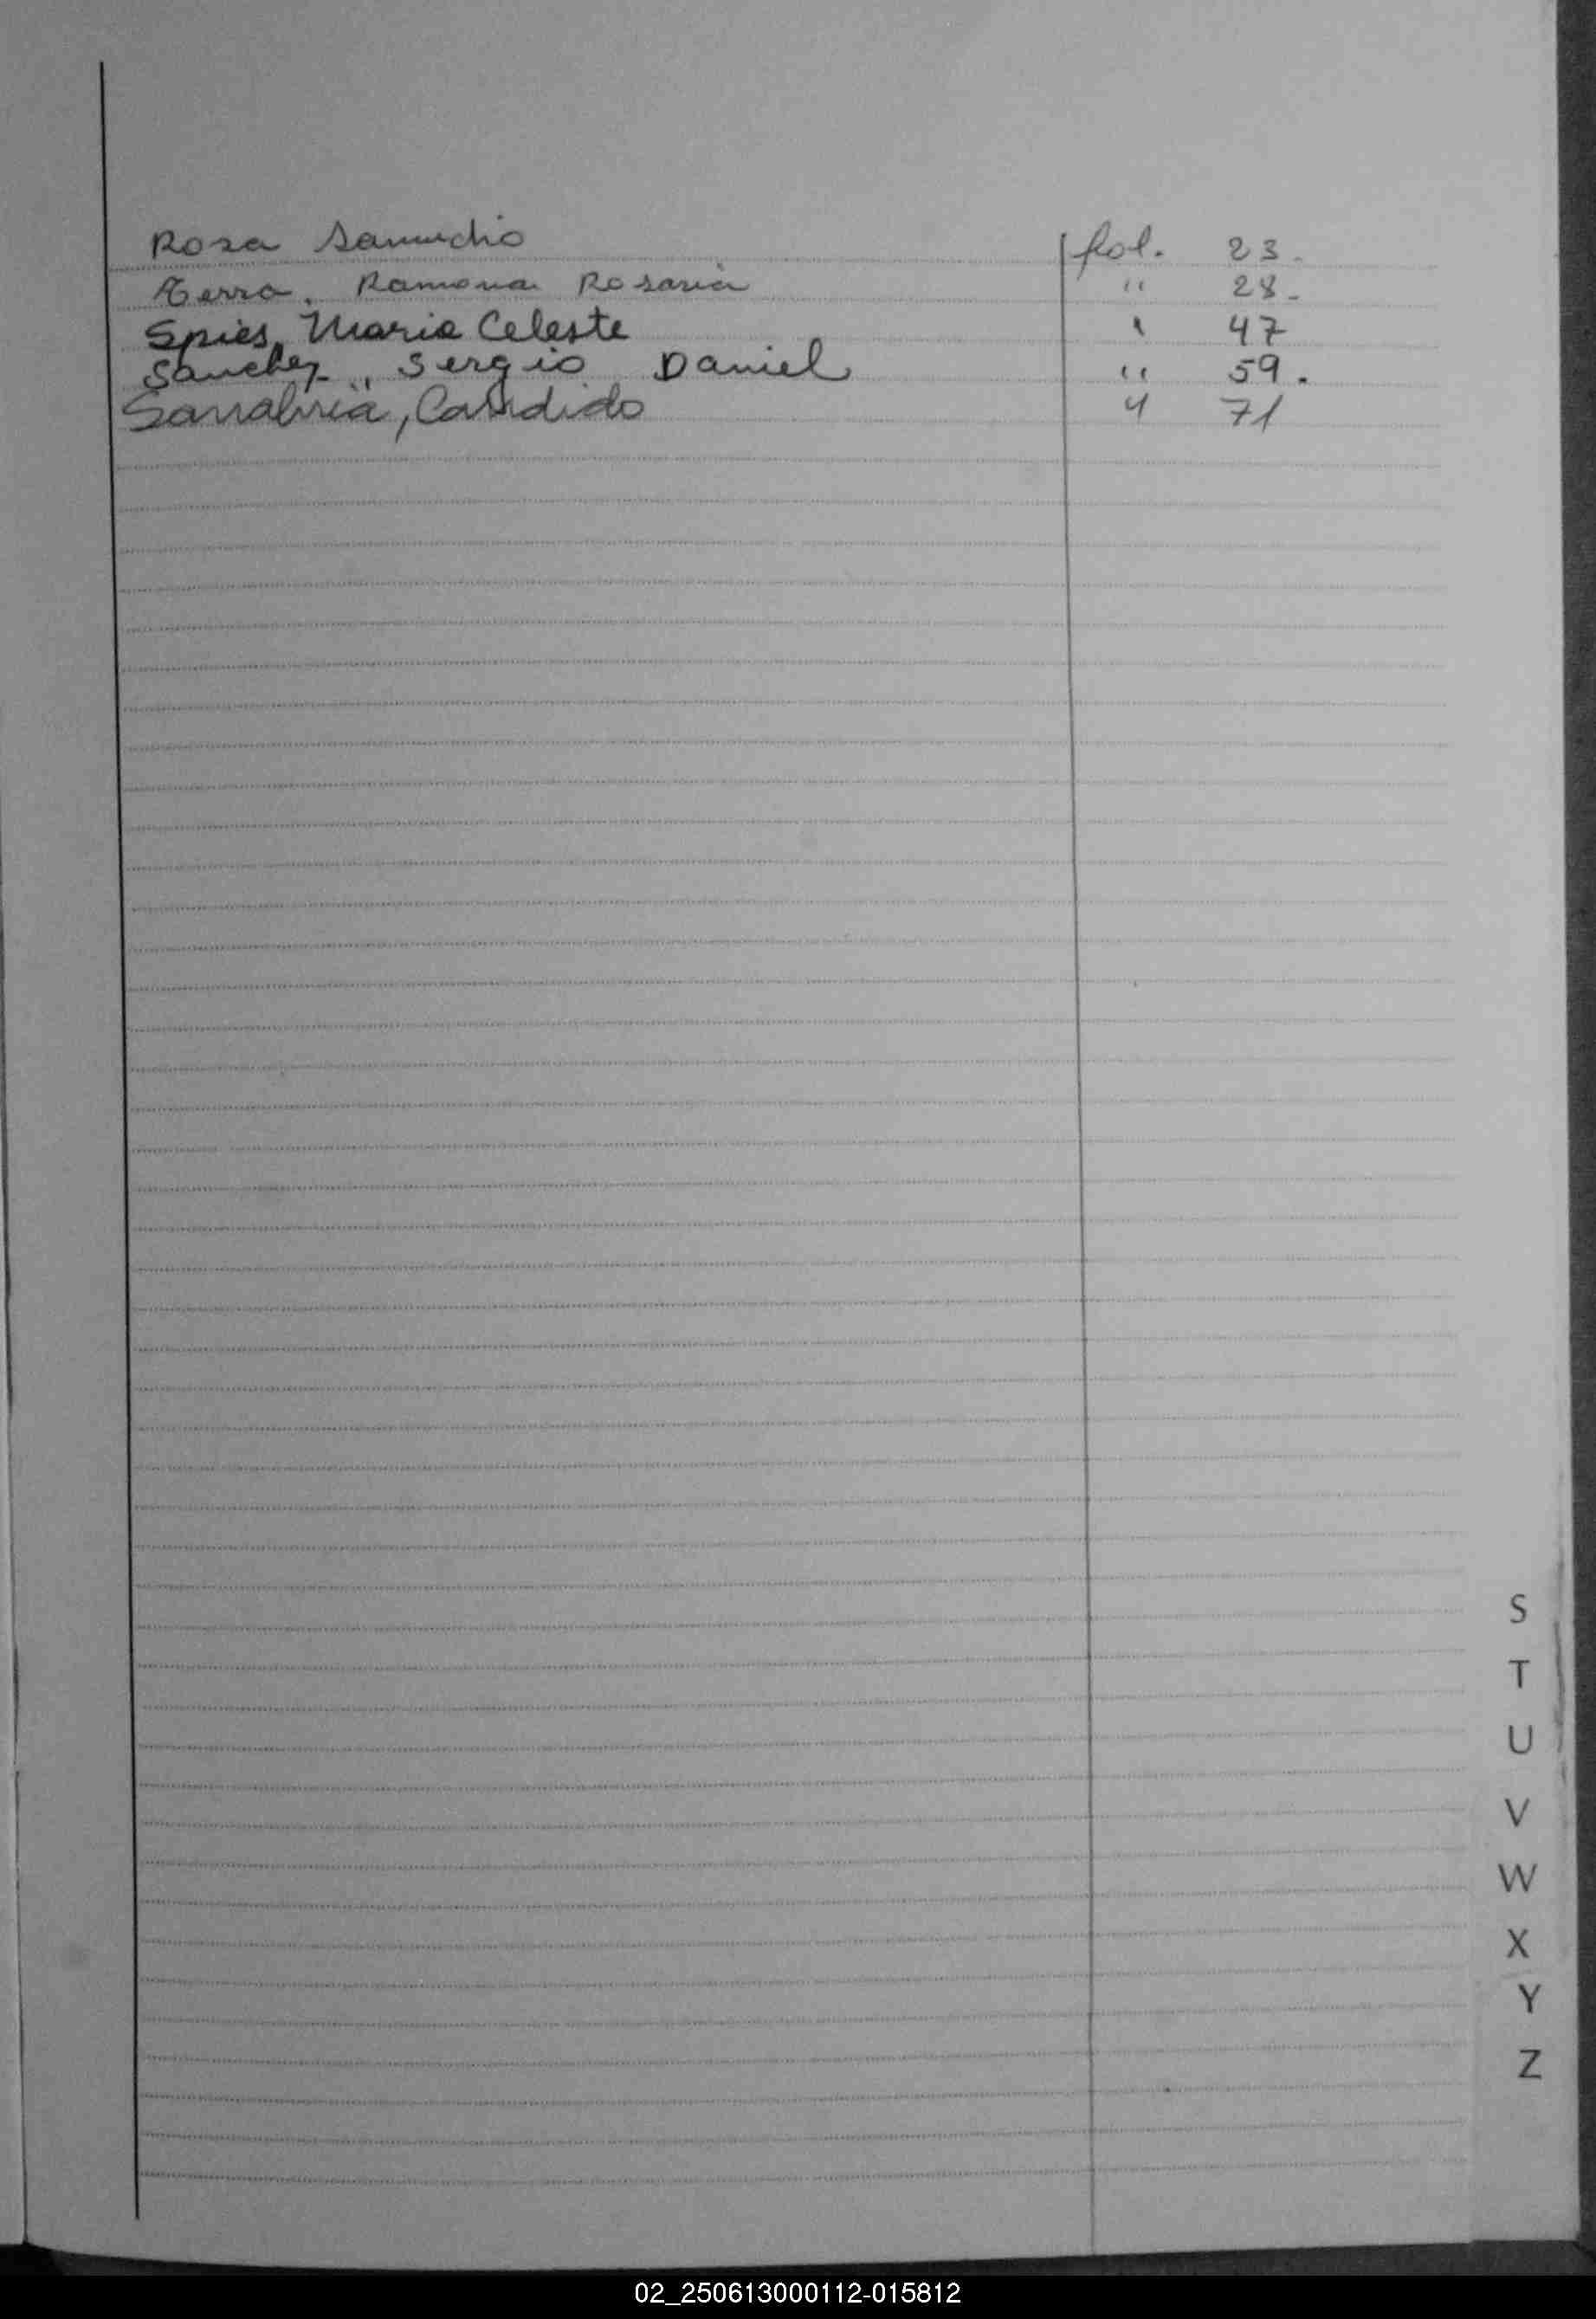 Rosa Samudio fol. 23.
Terra, Ramona Rosaria " 28.
Spies, Maria Celeste " 47
Sanchez, Sergio Daniel " 59.
Sanabria, Candido " 71
S
T
U
V
W
X
Y
Z
02_250613000112-015812